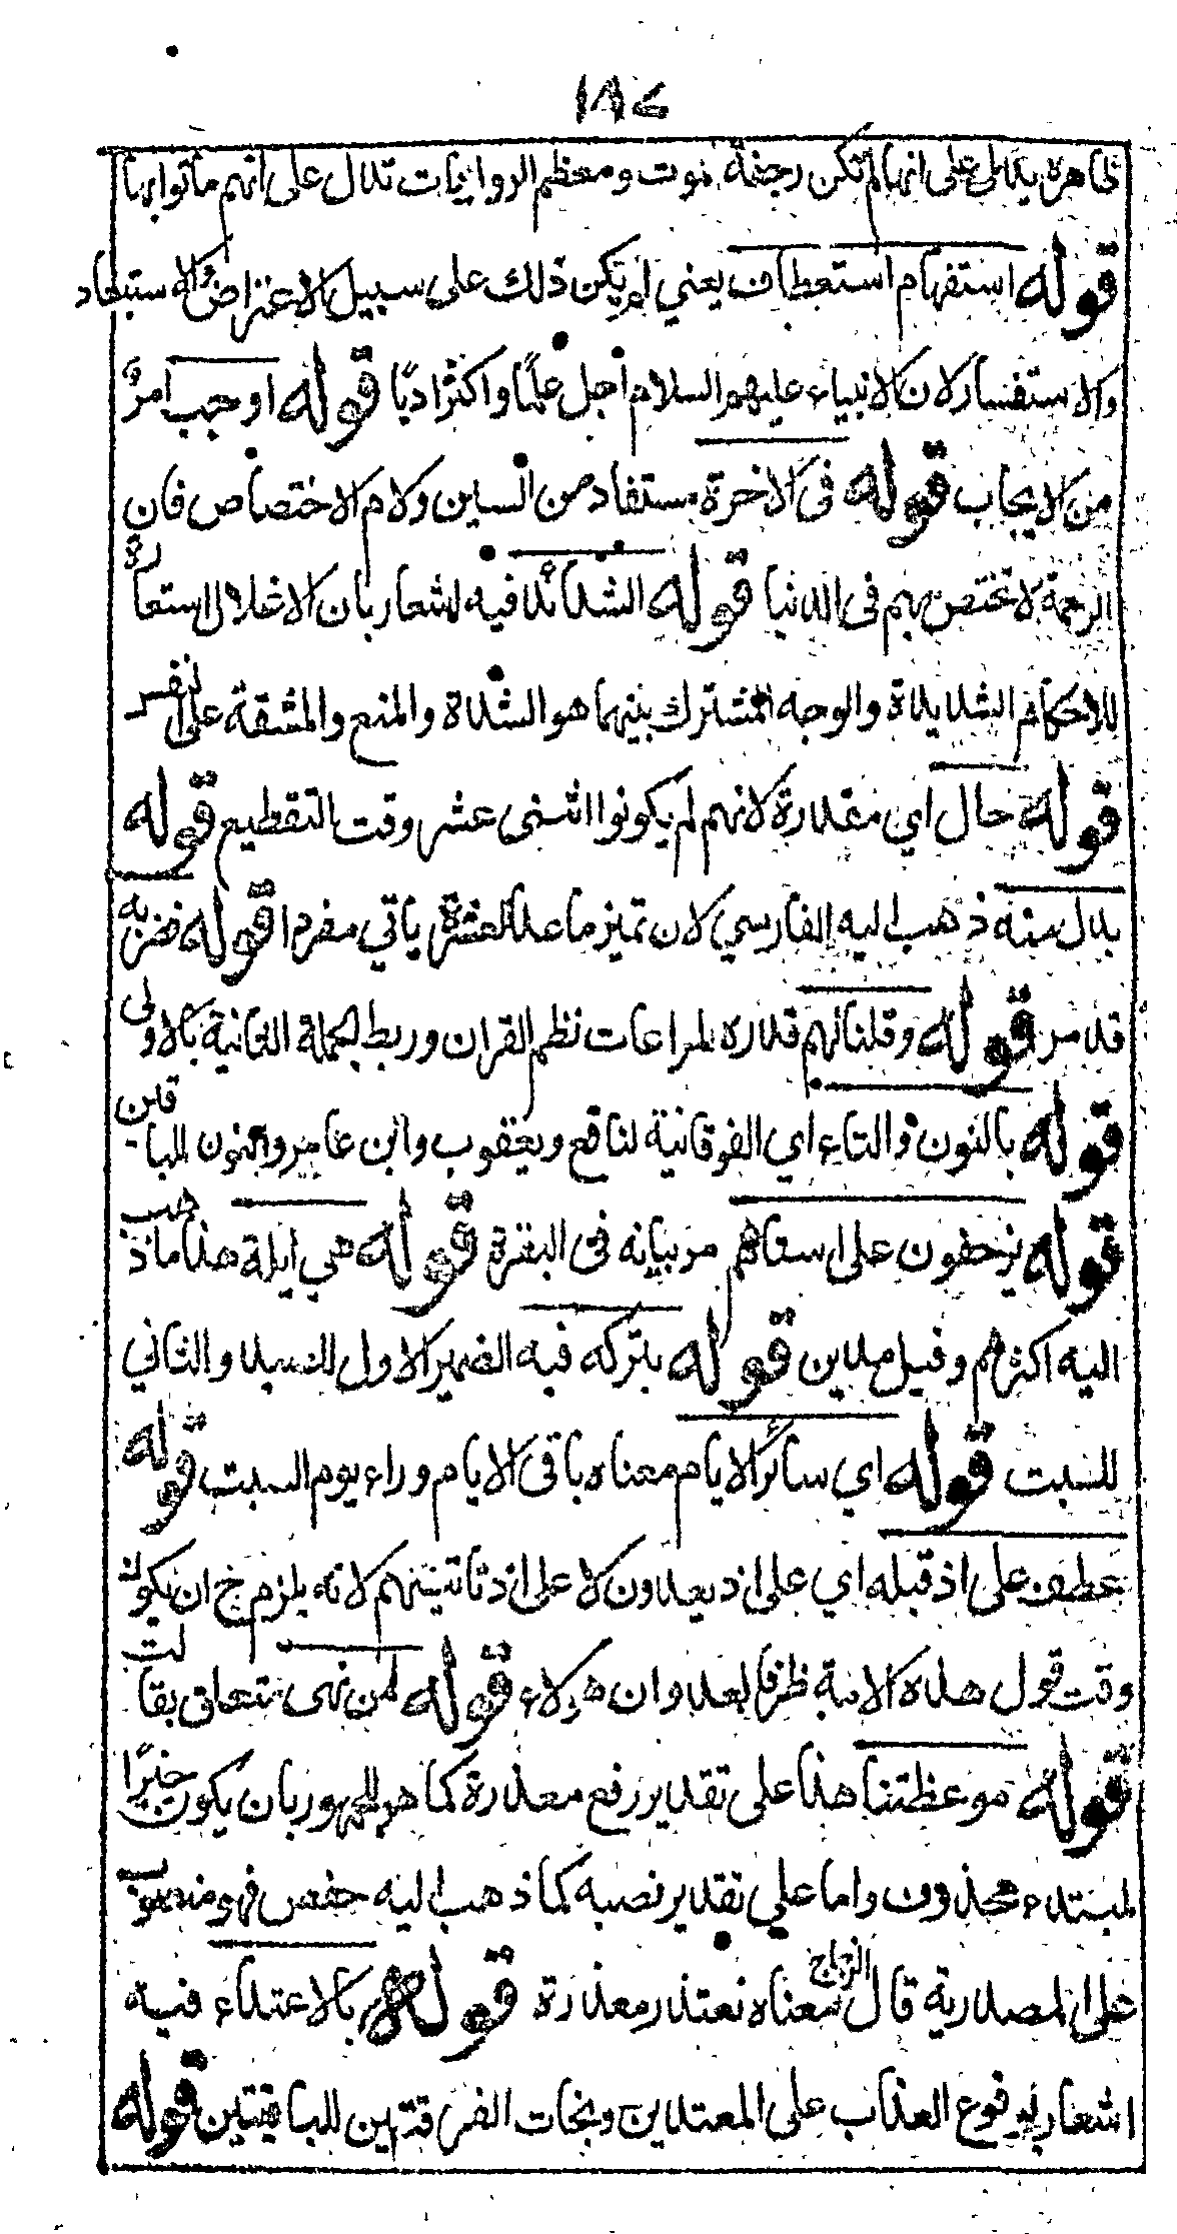 ١٨٤
ظاهره يدل على انها لم تكن رجفة موت ومعظم الروايات تدل على انهم ماتوا بها
قوله استفهام استعطاف يعني لم يكن ذلك على سبيل الاعتراض والاستبعاد
والاستفسار لان الانبياء عليهم السلام اجل علما واكثر ادبا قوله اوجب امر
من الايجاب قوله في الاخرة مستفاد من السين ولام الاختصاص فان
الرحمة لا تختص بهم في الدنيا قوله الشدائد فيه اشعار بان الاغلال استعارة
للاحكام الشديدة والوجه المشترك بينهما هو الشدة والمنع والمشقة على النفس
قوله حال اي مقدرة لانهم لم يكونوا اثنى عشر وقت التقطيع قوله
بدل منه ذهب اليه الفارسي لان تميز ما عدا العشرة ياتي مفردا قوله فضربه
قد مر قوله وقلنا لهم قدره لمراعات نظم القران وربط الجملة الثانية بالاولى
قوله بالنون والتاء اي الفوقانية لنافع ويعقوب وابن عامر والنون للباقين
قوله يزحفون على استاههم مر بيانه في البقرة قوله هي ايلة هذا ما ذهب
اليه اكثرهم وقيل مدين قوله بتركه فيه الضمير الاول للسيد والثاني
للسبت قوله اي سائر الايام معناه باقي الايام وراء يوم السبت قوله
عطف على اذ قبله اي على اذ يعدون لا على اذ تاتيهم لانه يلزم ح ان يكون
وقت قول هذه الامة ظرفا لعدوان هؤلاء قوله لمن نهى متعلق بقالت
قوله موعظتنا هذا على تقدير رفع معذرة كما هو للجمهور بان يكون خبرا
لمبتدء محذوف واما على تقدير نصبه كما ذهب اليه حفص فهو منصوب
على المصدرية قال الزجاج معناه نعتذر معذرة قوله بالاعتداء فيه
اشعار بوقوع العذاب على المعتدين ونجات الفرقتين للباقيتين قوله